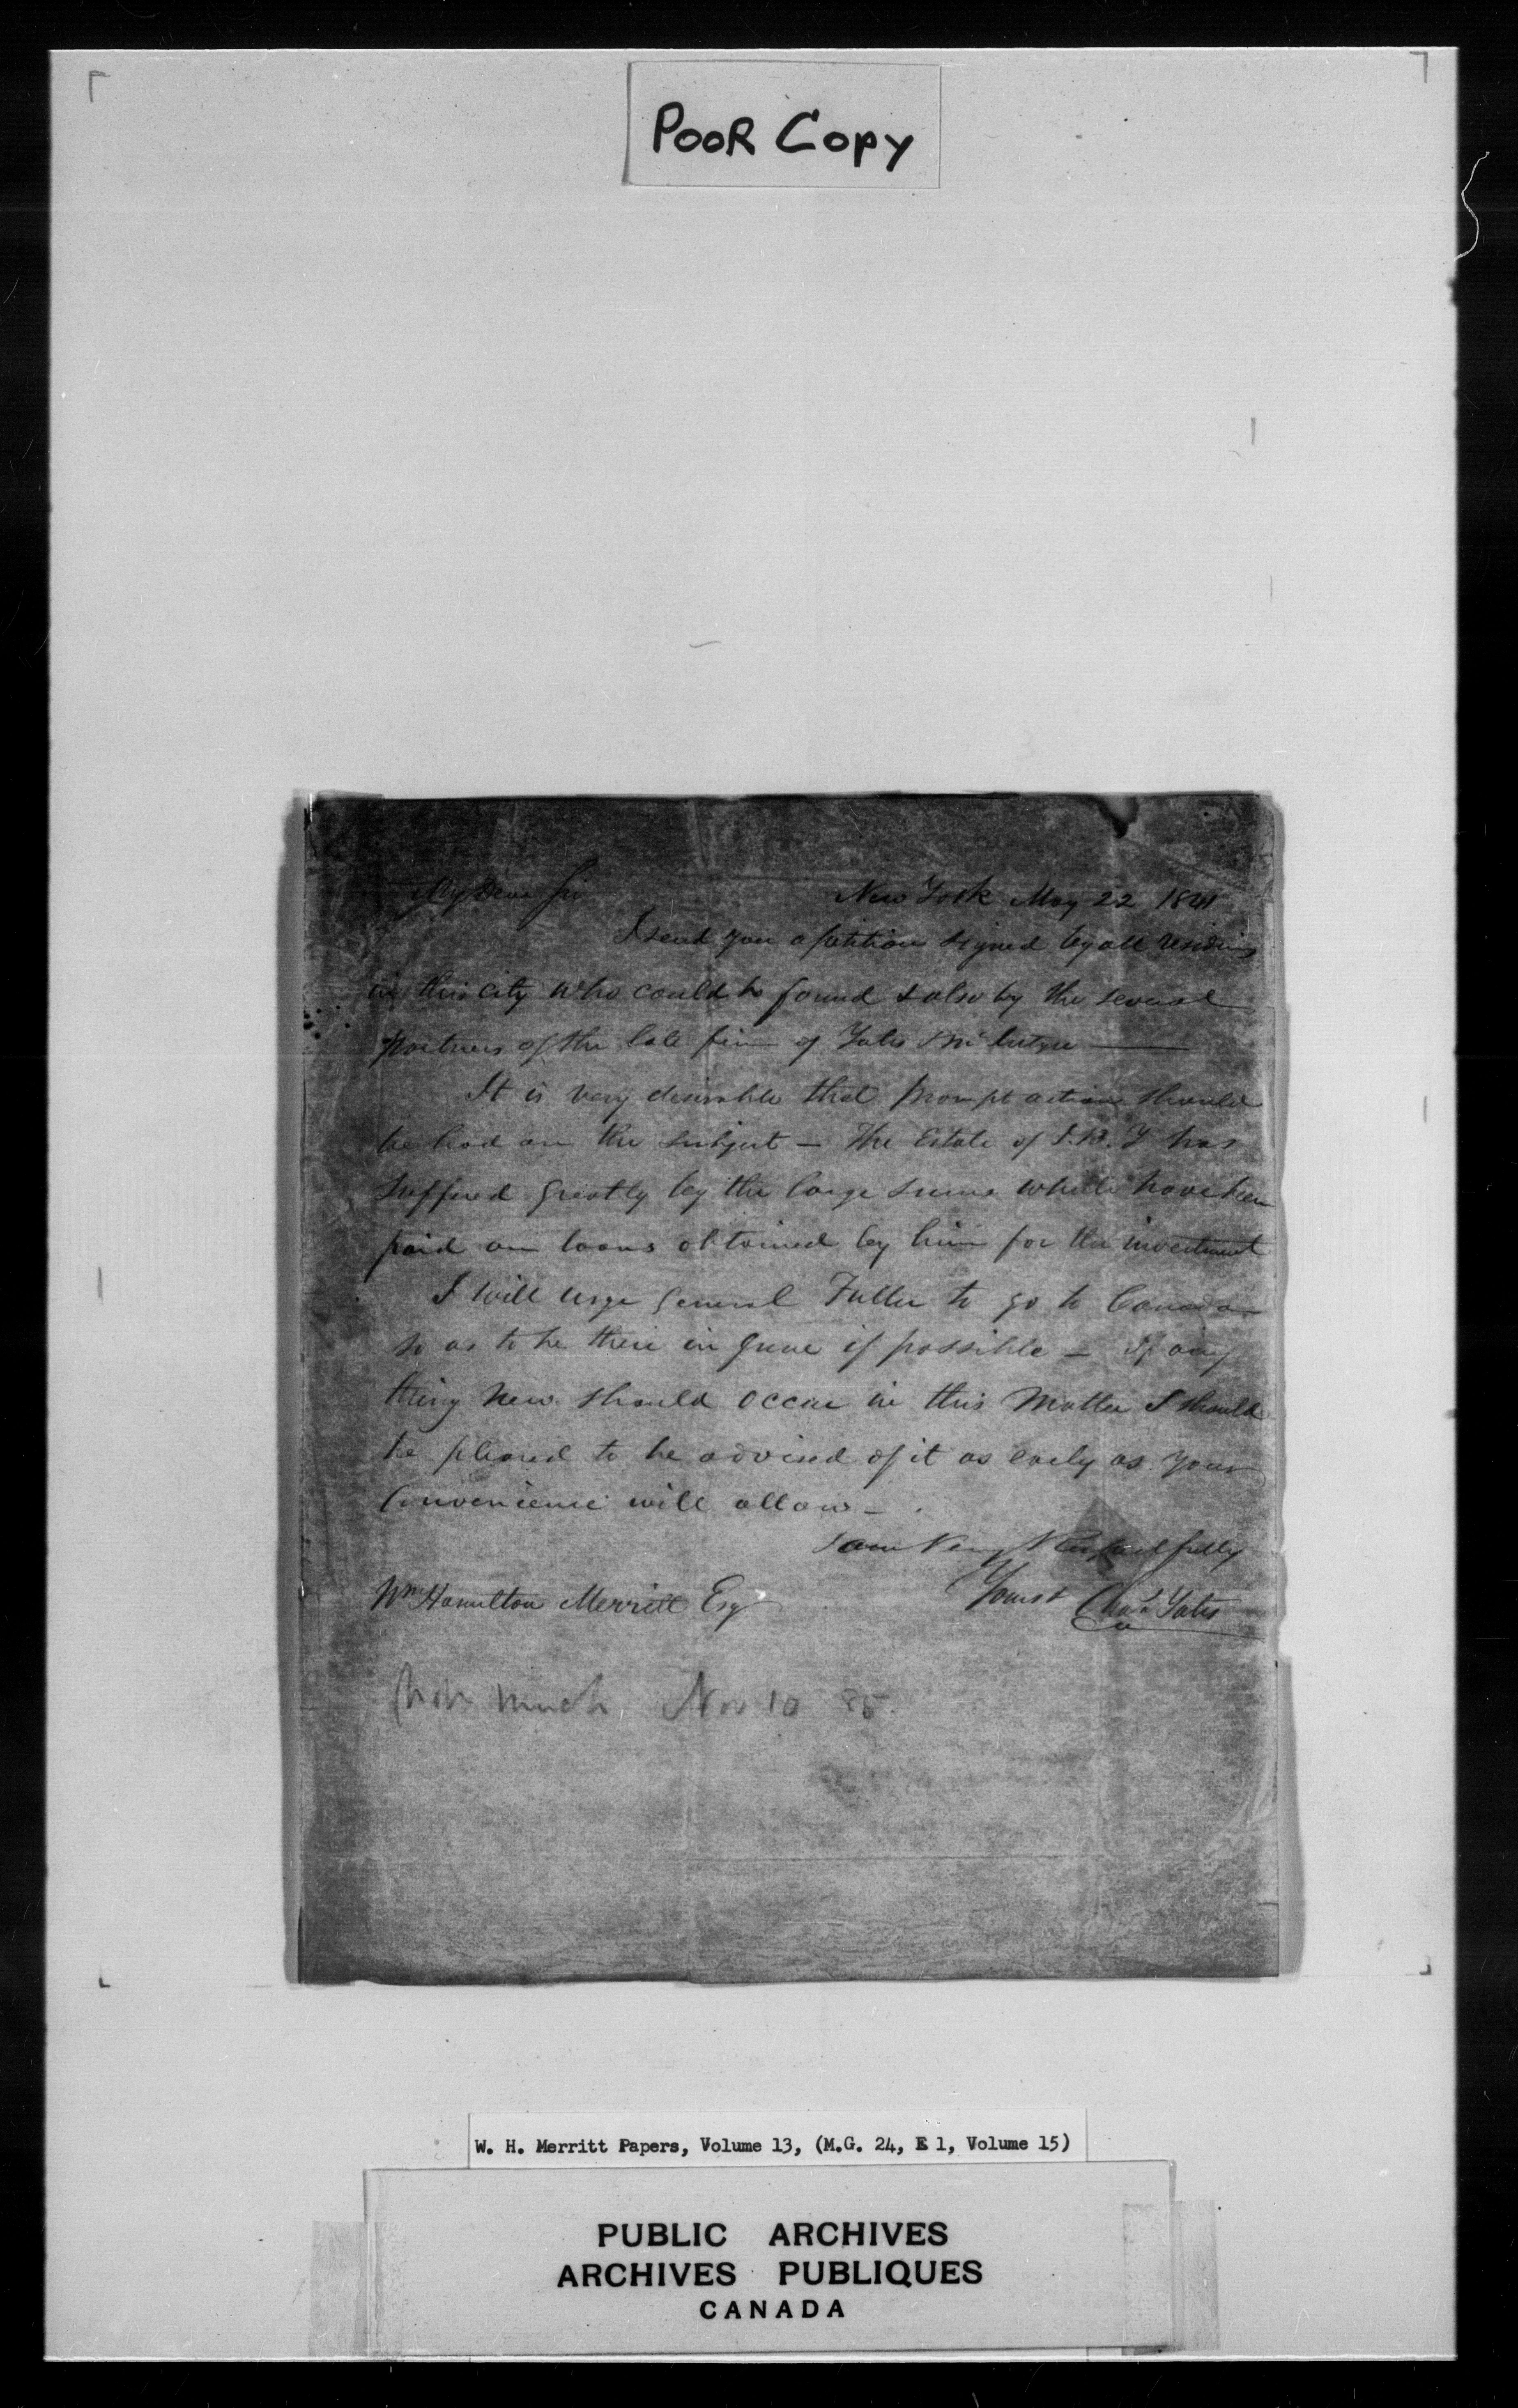 POOR COPY
My Dear Sir
New York May 22 1841
I send you a petition signed by all residing
in this city who could be found & also by the several
partners of the late firm of Yates & McIntyre
It is very desirable that prompt action should
be had on the subject - The Estate of J. B. Y has
suffered greatly by the large sums which have been
paid on loans obtained by him for the investment
I will urge General Fuller to go to Canada
so as to be there in June if possible - If any
thing new should occur in this matter I should
be pleased to be advised of it as early as your
Convenience will allow -
I am Very Respectfully
Wm Hamilton Merritt Esq
Yours & Chas Yates
much Nov 10
W. H. Merritt Papers, Volume 13, (M.G. 24, E 1, Volume 15)
PUBLIC ARCHIVES
ARCHIVES PUBLIQUES
CANADA